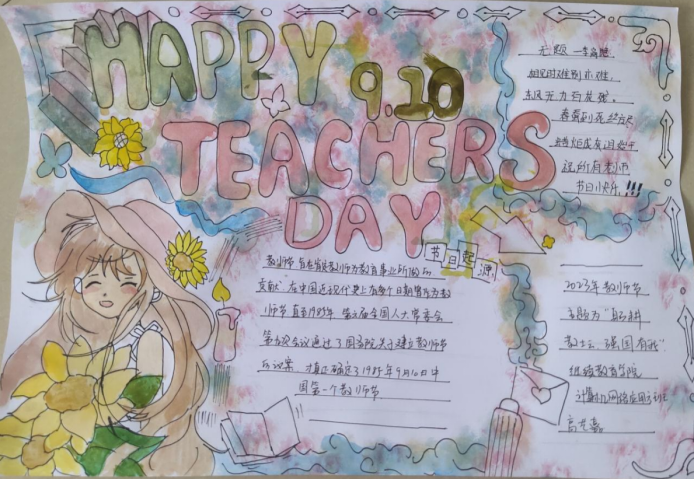 HAPPY
9.10
TEACHERS
DAY
无题 李商隐
相见时难别亦难,
东风无力百花残。
春蚕到死丝方尽
蜡炬成灰泪始干
祝所有老师
节日快乐!!!
节日起源
教师节 旨在肯定教师为教育事业所做的
贡献。在中国近现代史上有多个日期曾作为教
师节 直至1985年 第六届全国人大常委会
第九次会议通过了国务院关于建立教师节
的议案 才真正确定了1985年9月10日中
国第一个教师节
2023年教师节
主题为“躬耕
教坛 强国有我”
继续教育学院
计算机网络应用